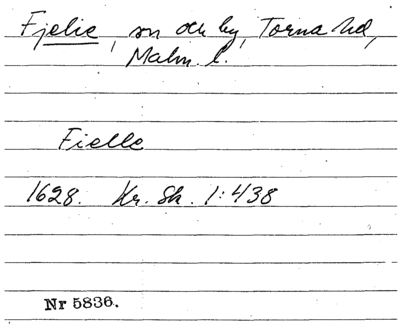 Fjelie, sn och by, Torna hd,
Malm. l.
Fielle
1628. Kr. Sk. 1:438
Nr 5836.